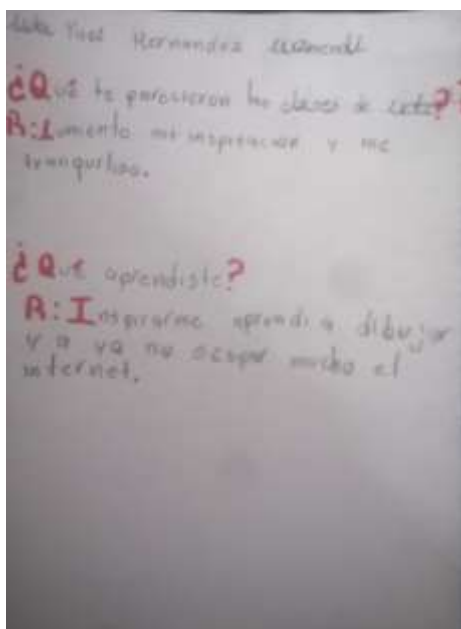 Hernandez
¿Qué te parecieron las clases de
R: mi inspiración y me
tranquilizo.
¿Qué aprendiste?
R: Inspirarme aprendi a dibujar
y a ya no ocupar mucho el
internet.